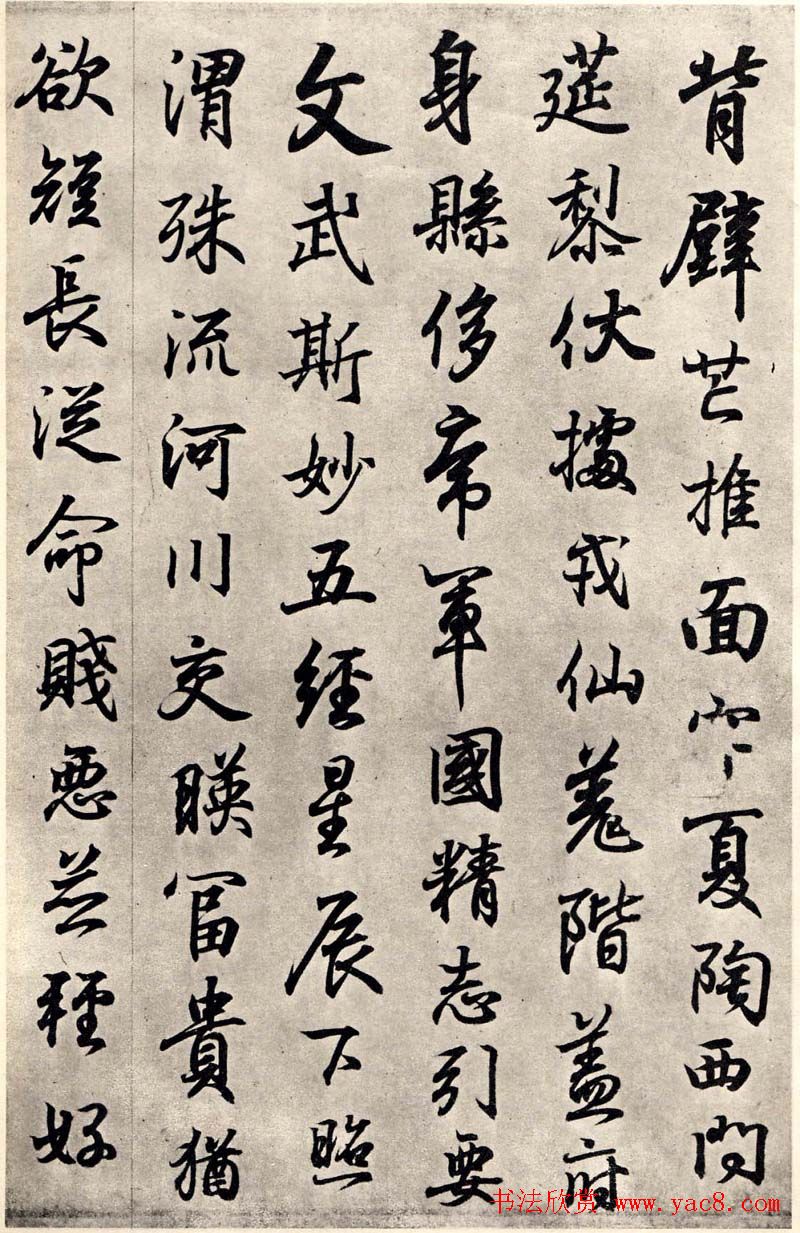 背璧芒推面夏陶西問
莚黎伏據戎仙羌階蓋府
身縣侈帝軍國精志引要
文武斯妙五經星辰下照
渭殊流河川交暎富貴猶
欲短長從命賤惡並種好
书法欣赏 www.yac8.com